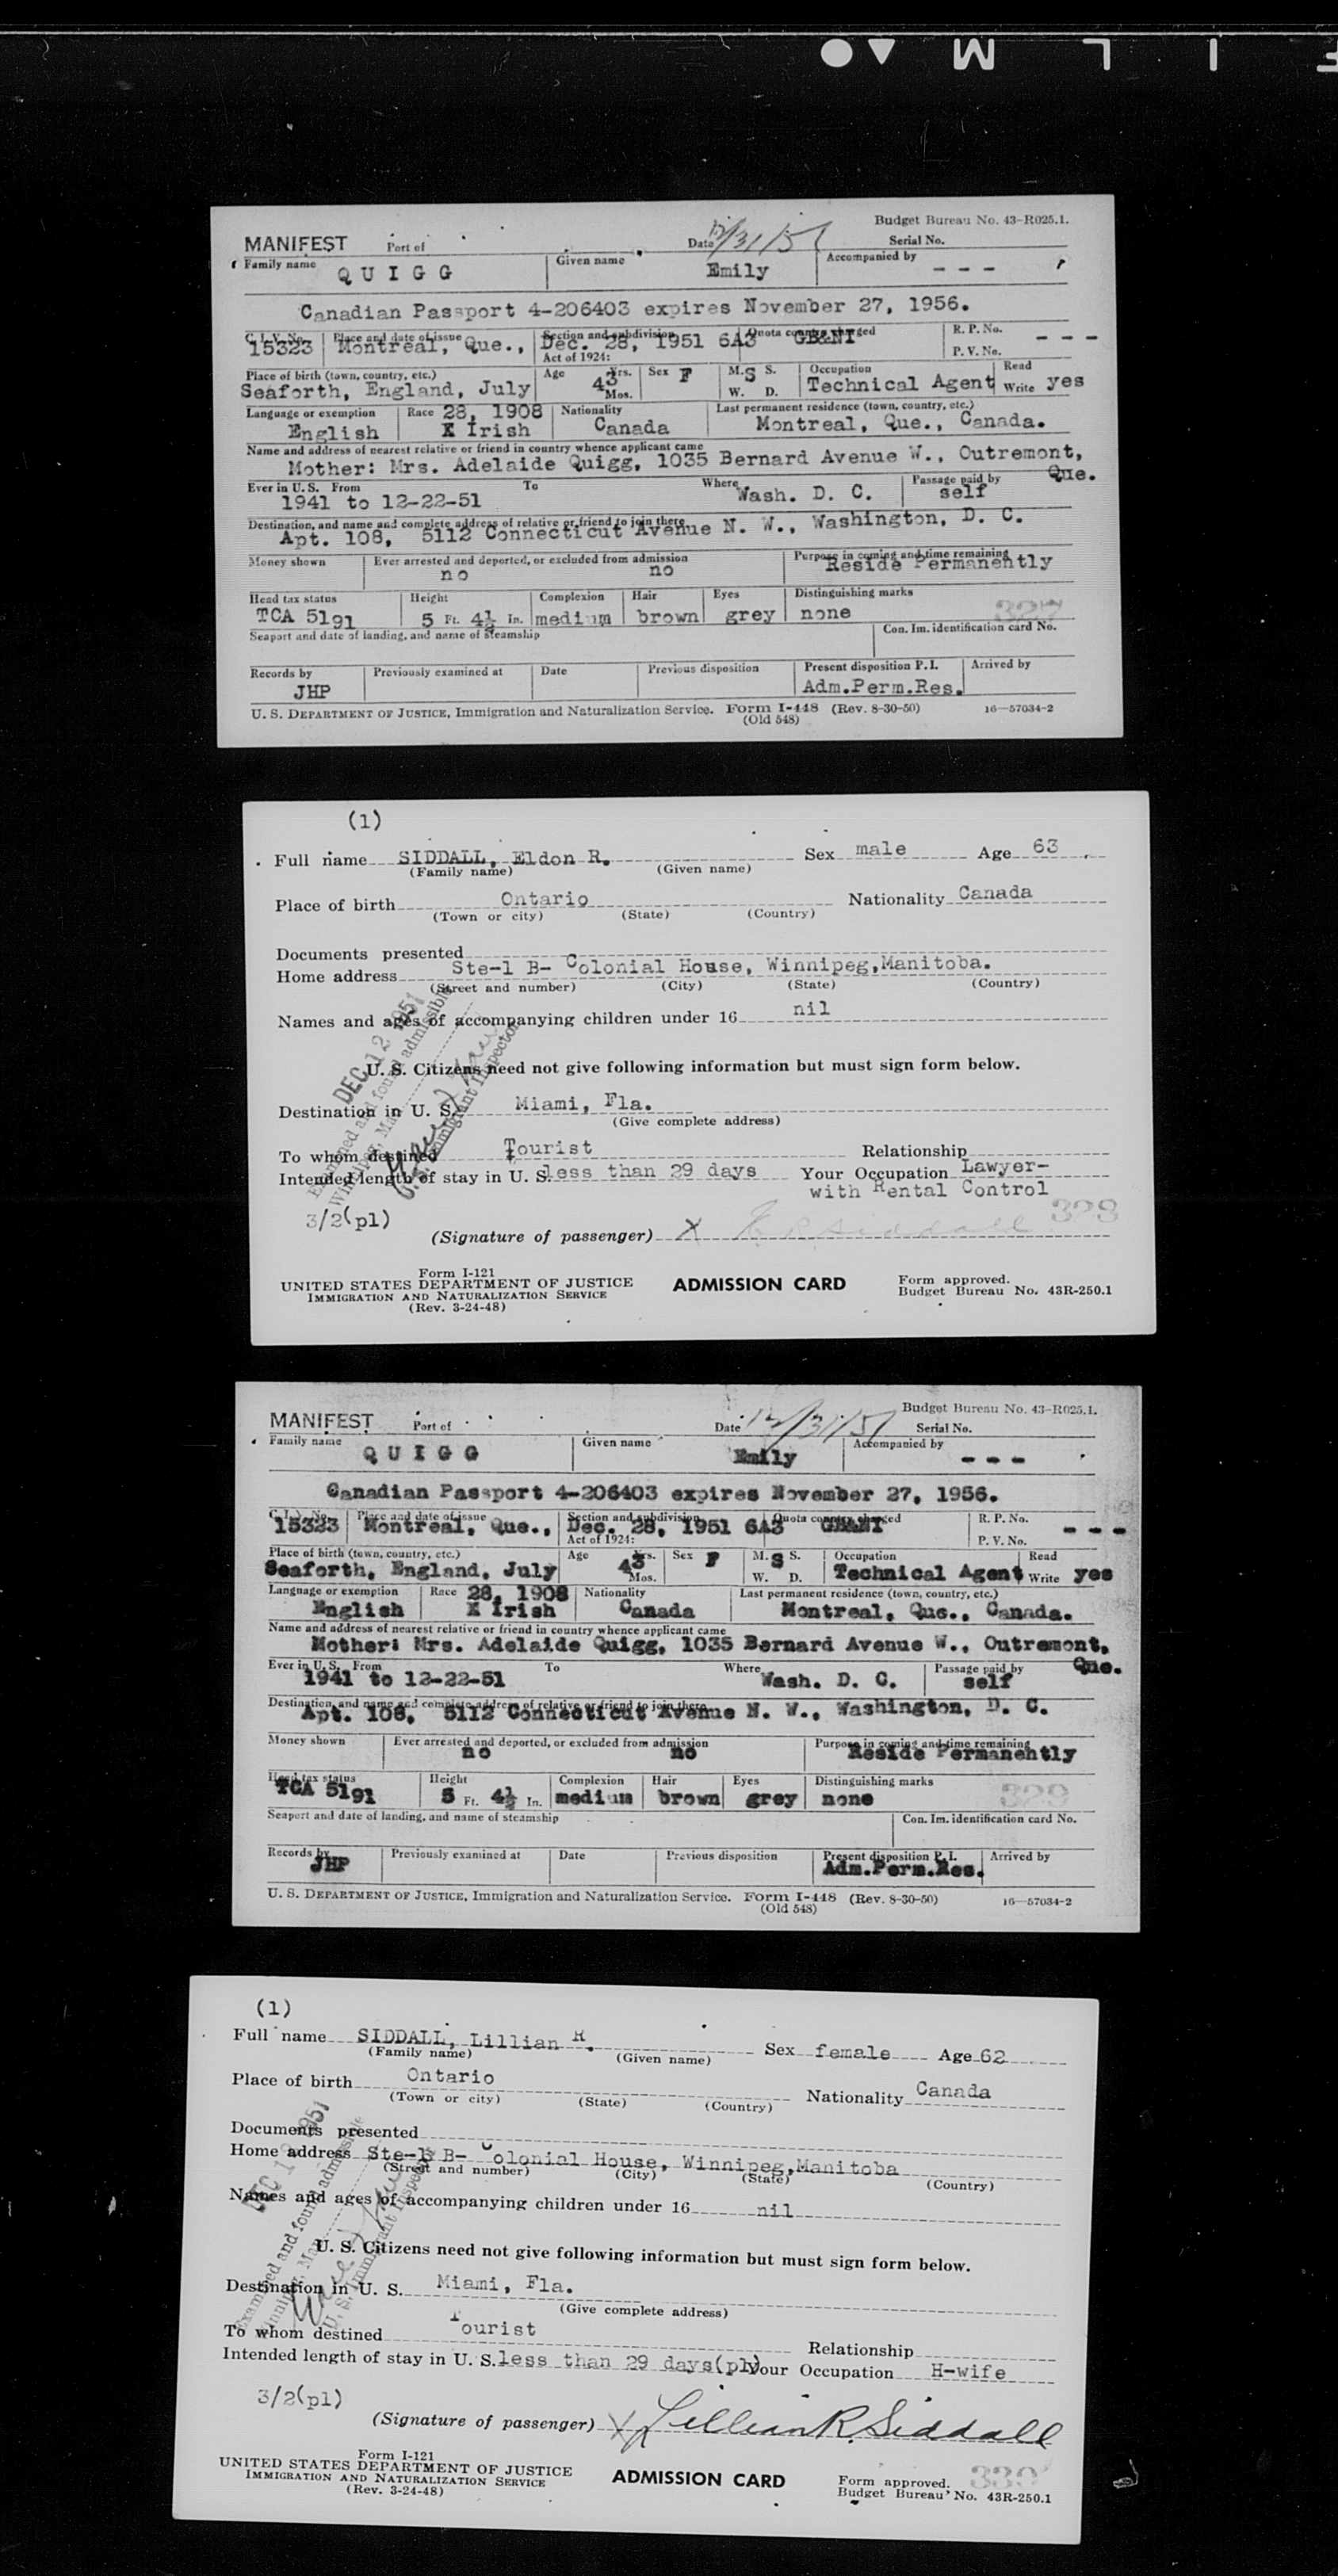 F I L M
Budget Bureau No. 43-R025.1.
MANIFEST Port of Date 12/31/51 Serial No.
Family name QUIGG Given name Emily Accompanied by - - -
Canadian Passport 4-206403 expires November 27, 1956.
C.I.V. No. Place and date of issue Section and subdivision Quota country charged R. P. No.
15323 Montreal, Que., Dec. 28, 1951 6A3 GB&NI - - -
Act of 1924: P. V. No.
Place of birth (town, country, etc.) Age Yrs. Sex F M. S S. Occupation Read
Seaforth, England, July 43 Mos. W. D. Technical Agent Write yes
Language or exemption Race 28, 1908 Nationality Last permanent residence (town, country, etc.)
English X Irish Canada Montreal, Que., Canada.
Name and address of nearest relative or friend in country whence applicant came
Mother: Mrs. Adelaide Quigg, 1035 Bernard Avenue W., Outremont,
Que.
Ever in U. S. From To Where Passage paid by
1941 to 12-22-51 Wash. D. C. self
Destination, and name and complete address of relative or friend to join there
Apt. 108, 5112 Connecticut Avenue N. W., Washington, D. C.
Money shown Ever arrested and deported, or excluded from admission Purpose in coming and time remaining
no no Reside Permanently
Head tax status Height Complexion Hair Eyes Distinguishing marks
TCA 5191 5 Ft. 4½ In. medium brown grey none 327
Seaport and date of landing, and name of steamship Con. Im. identification card No.
Records by Previously examined at Date Previous disposition Present disposition P. I. Arrived by
JHP Adm.Perm.Res.
U. S. DEPARTMENT OF JUSTICE, Immigration and Naturalization Service. Form I-448 (Rev. 8-30-50) 16—57034-2
(Old 548)
(1)
Full name SIDDALL, Eldon R. Sex male Age 63
(Family name) (Given name)
Place of birth Ontario Nationality Canada
(Town or city) (State) (Country)
Documents presented
Home address Ste-1 B- Colonial House, Winnipeg,Manitoba.
(Street and number) (City) (State) (Country)
Names and ages of accompanying children under 16 nil
DEC 12 1951
Examined and found admissible
Winnipeg, Man.
U. S. Immigrant Inspector
U. S. Citizens need not give following information but must sign form below.
Destination in U. S. Miami, Fla.
(Give complete address)
To whom destined Tourist Relationship
Intended length of stay in U. S. less than 29 days Your Occupation Lawyer-
with Rental Control
3/2(pl) 328
(Signature of passenger) X E R Siddall
Form I-121
UNITED STATES DEPARTMENT OF JUSTICE ADMISSION CARD Form approved.
IMMIGRATION AND NATURALIZATION SERVICE Budget Bureau No. 43R-250.1
(Rev. 3-24-48)
Budget Bureau No. 43-R025.1.
MANIFEST Port of Date 12/31/51 Serial No.
Family name QUIGG Given name Emily Accompanied by - - -
Canadian Passport 4-206403 expires November 27, 1956.
C.I.V. No. Place and date of issue Section and subdivision Quota country charged R. P. No.
15323 Montreal, Que., Dec. 28, 1951 6A3 GB&NI - - -
Act of 1924: P. V. No.
Place of birth (town, country, etc.) Age Yrs. Sex F M. S S. Occupation Read
Seaforth, England, July 43 Mos. W. D. Technical Agent Write yes
Language or exemption Race 28, 1908 Nationality Last permanent residence (town, country, etc.)
English X Irish Canada Montreal, Que., Canada.
Name and address of nearest relative or friend in country whence applicant came
Mother: Mrs. Adelaide Quigg, 1035 Bernard Avenue W., Outremont,
Que.
Ever in U. S. From To Where Passage paid by
1941 to 12-22-51 Wash. D. C. self
Destination, and name and complete address of relative or friend to join there
Apt. 108, 5112 Connecticut Avenue N. W., Washington, D. C.
Money shown Ever arrested and deported, or excluded from admission Purpose in coming and time remaining
no no Reside Permanently
Head tax status Height Complexion Hair Eyes Distinguishing marks
TCA 5191 5 Ft. 4½ In. medium brown grey none 329
Seaport and date of landing, and name of steamship Con. Im. identification card No.
Records by Previously examined at Date Previous disposition Present disposition P. I. Arrived by
JHP Adm.Perm.Res.
U. S. DEPARTMENT OF JUSTICE, Immigration and Naturalization Service. Form I-448 (Rev. 8-30-50) 16—57034-2
(Old 548)
(1)
Full name SIDDALL, Lillian R. Sex female Age 62
(Family name) (Given name)
Place of birth Ontario Nationality Canada
(Town or city) (State) (Country)
Documents presented
Home address Ste-1 B- Colonial House, Winnipeg,Manitoba
(Street and number) (City) (State) (Country)
Names and ages of accompanying children under 16 nil
DEC 12 1951
Examined and found admissible
Winnipeg, Man.
U. S. Immigrant Inspector
U. S. Citizens need not give following information but must sign form below.
Destination in U. S. Miami, Fla.
(Give complete address)
To whom destined Tourist Relationship
Intended length of stay in U. S. less than 29 days(pl) Your Occupation H-wife
3/2(pl)
(Signature of passenger) X Lillian R. Siddall
Form I-121
UNITED STATES DEPARTMENT OF JUSTICE ADMISSION CARD Form approved. 330
IMMIGRATION AND NATURALIZATION SERVICE Budget Bureau No. 43R-250.1
(Rev. 3-24-48)